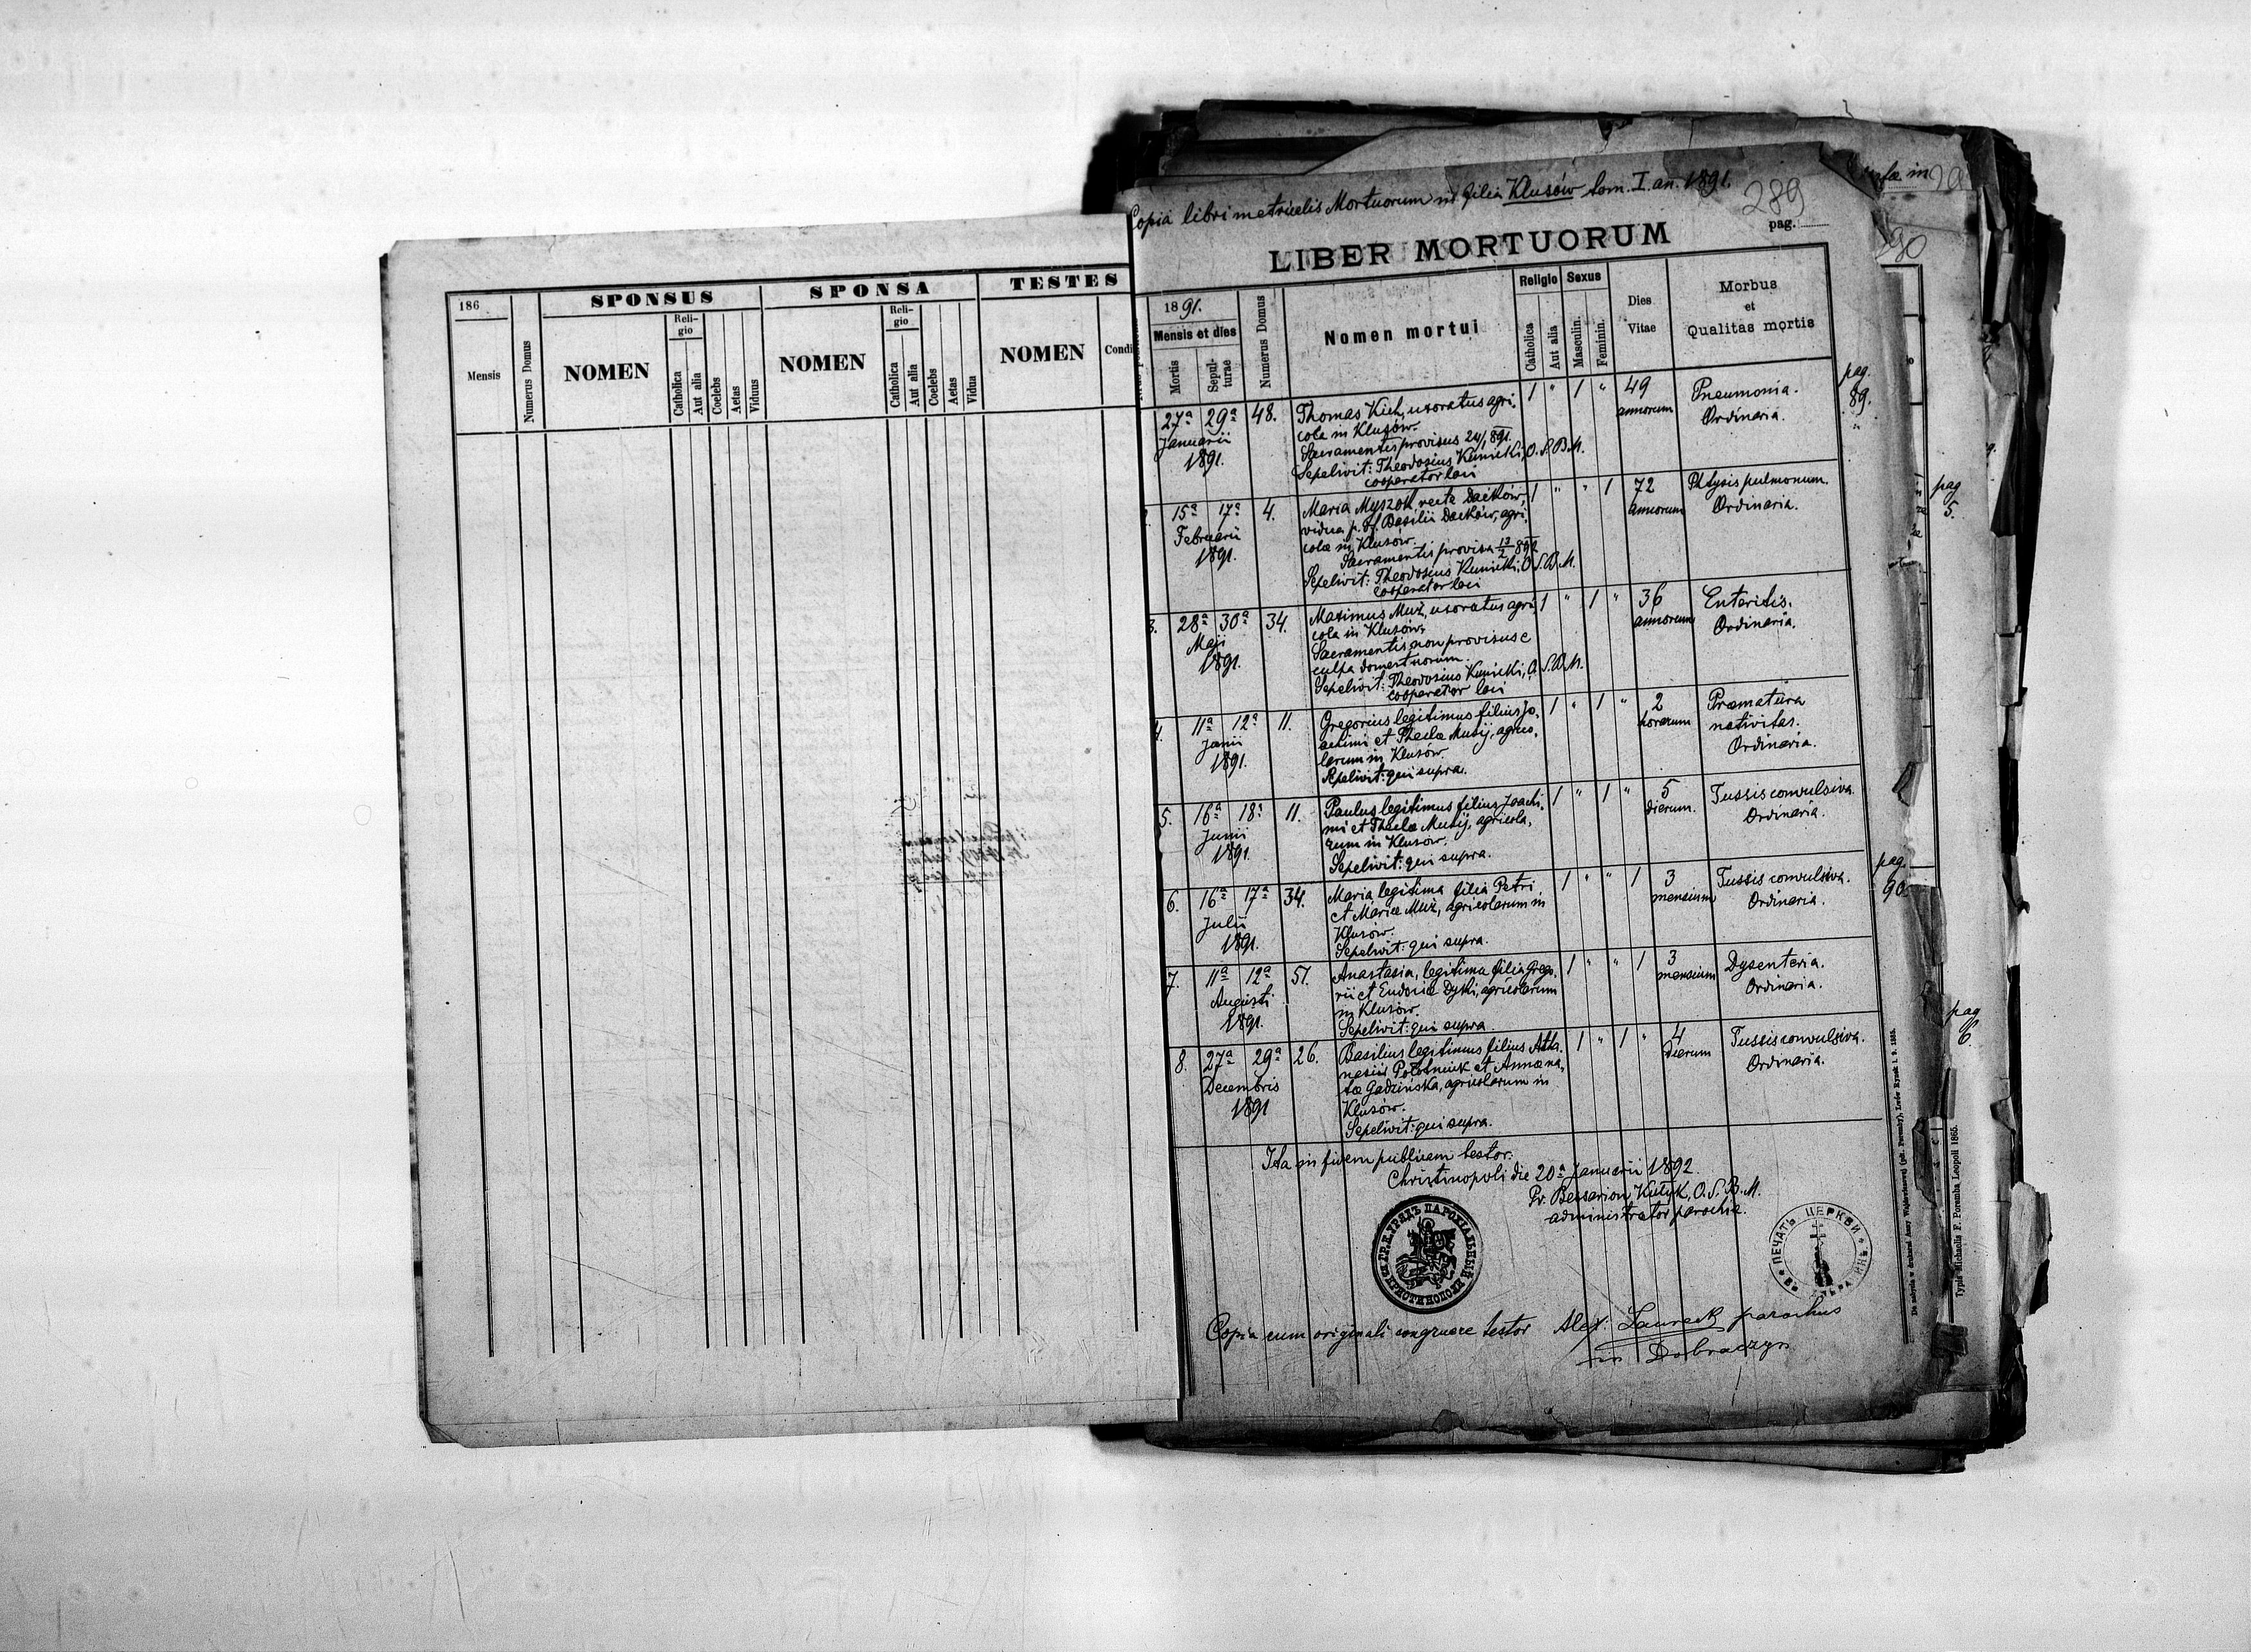 186
Mensis
Numerus Domus
SPONSUS
NOMEN
Reli-
gio
Catholica
Aut alia
Coelebs
Aetas
Viduus
SPONSA
NOMEN
Reli-
gio
Catholica
Aut alia
Coelebs
Aetas
Vidua
TESTES
NOMEN
Condi
Copia libri metricalis Mortuorum in filia Klusów tom. I. an. 1891.
289
pag.
LIBER MORTUORUM
1891.
Mensis et dies
Mortis
Sepul-
turae
Numerus Domus
Nomen mortui
Religio
Catholica
Aut alia
Sexus
Masculin.
Feminin.
Dies
Vitae
Morbus
et
Qualitas mortis
27ª 29ª 48. Thomas Kich, uxoratus agri, 1 " 1 " 49 Pneumonia. pag.
Januarii cola in Klusów. annorum Ordinaria. 89.
1891. Sacramentis provisus 24/1 891. "
Sepelivit: Theodosius Kunicki, O.S.B.M.
cooperator loci
15ª 17ª 4. Maria Myszok, recte Daćków, 1 " " 1 72 Phtysis pulmonum.
Februarii vidua p. def. Basilii Daćków, agri, annorum Ordinaria.
1891. colæ in Klusów.
Sacramentis provisa 13/2 892
Sepelivit: Theodosius Kunicki, O.S.B.M.
cooperator loci
3. 28ª 30ª 34. Maximus Muż, uxoratus agri, 1 " 1 " 36 Enteritis.
Maji cola in Klusów. annorum Ordinaria.
1891. Sacramentis non provisus e
culpa domesticorum.
Sepelivit: Theodosius Kunicki, O.S.B.M.
cooperator loci
4. 11ª 12ª 11. Gregorius legitimus filius Jo, 1 " 1 " 2 Præmatura
Junii achimi et Theclæ Musij, agrico, horarum nativitas.
1891. larum in Klusów. Ordinaria.
Sepelivit: qui supra.
5. 16ª 18ª 11. Paulus legitimus filius Joachi, 1 " 1 " 5 Tussis convulsiva.
Junii mi et Theclæ Musij, agricola, dierum. Ordinaria.
1891. rum in Klusów.
Sepelivit: qui supra.
6. 16ª 17ª 34. Maria legitima filia Petri 1 " " 1 3 Tussis convulsiva. pag.
Julii et Mariæ Muż, agricolarum in mensium Ordinaria. 90.
1891. Klusów.
Sepelivit: qui supra.
7. 11ª 12ª 51. Anastasia, legitima filia Grego, 1 " " 1 3 Dysenteria.
Augusti rii et Eudociæ Dyki, agricolarum mensium Ordinaria.
1891. in Klusów.
Sepelivit: qui supra.
8. 27ª 29ª 26. Basilius legitimus filius Atha, 1 " 1 " 4 Tussis convulsiva.
Decembris nasii Połotniuk et Annæ na, dierum Ordinaria.
1891 tæ Gadzińska, agricolarum in
Klusów.
Sepelivit: qui supra.
Ita in fidem publicam testor.
Christinopoli die 20ª Januarii 1892.
Pr. Bessarion Kułyk, O.S.B.M.
administrator parochiæ.
ГР. К. УРЯДЪ ПАРОХІАЛЬНЫЙ
ПЕЧАТЬ ЦЕРКВИ
Copia cum originali congruere testor Alex. Laurecki parochus
in Dobraczyn
pag
5.
pag
6
Typis Michaelis F. Poremba Leopoli 1865.